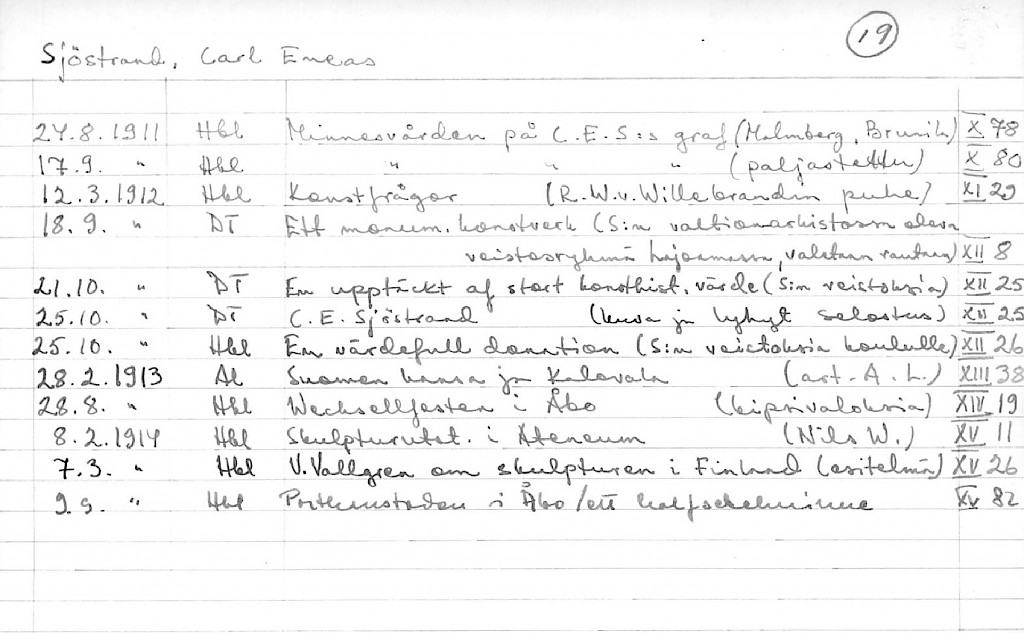 19
Sjöstrand, Carl Eneas
24.8.1911 Hbl Minnesvården på C.E.S:s graf (Malmberg, Brunila) X 78
17.9. " Hbl " " " (paljastettu) X 80
12.3.1912 Hbl Konstfrågor (R.W.v.Willebrandin puhe) XI 29
18.9. " DT Ett monum. konstverk (S:n valtionarkistossa oleva
veistosryhmä hajoamassa, valetaan rautaan) XII 8
21.10. " DT En upptäckt af stort konsthist. värde (S:n veistoksia) XII 25
25.10. " DT C.E. Sjöstrand (kuva ja lyhyt selostus) XII 25
25.10. " Hbl En värdefull donation (S:n veistoksia koululle) XII 26
28.2.1913 Al Suomen kansa ja Kalevala (art. A.L.) XIII 38
28.8. " Hbl Wecksellfesten i Åbo (kipsivaloksia) XIV 19
8.2.1914 Hbl Skulpturutst. i Ateneum (Nils W.) XV 11
7.3. " Hbl V.Vallgren om skulpturen i Finland (esitelmä) XV 26
9.9. " Hbl Porthansstoden i Åbo / ett halfsekelminne XV 82